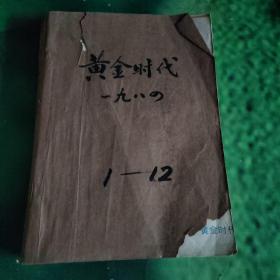 黄金时代
一九八四
1—12
黄金时代